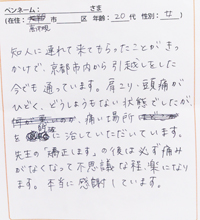 ペンネーム： さま
(在住： 市 区 年齢：２０代 性別：女)
知人に連れて来てもらったことがきっ
かけで、京都市内から引越しをした
今でも通っています。肩こり・頭痛が
ひどく、どうしようもない状態でしたが
痛い場所
を に治していただいています。
先生の「矯正します。」の後は必ず痛み
がなくなって不思議な程、楽になり
ます。本当に感謝しています。